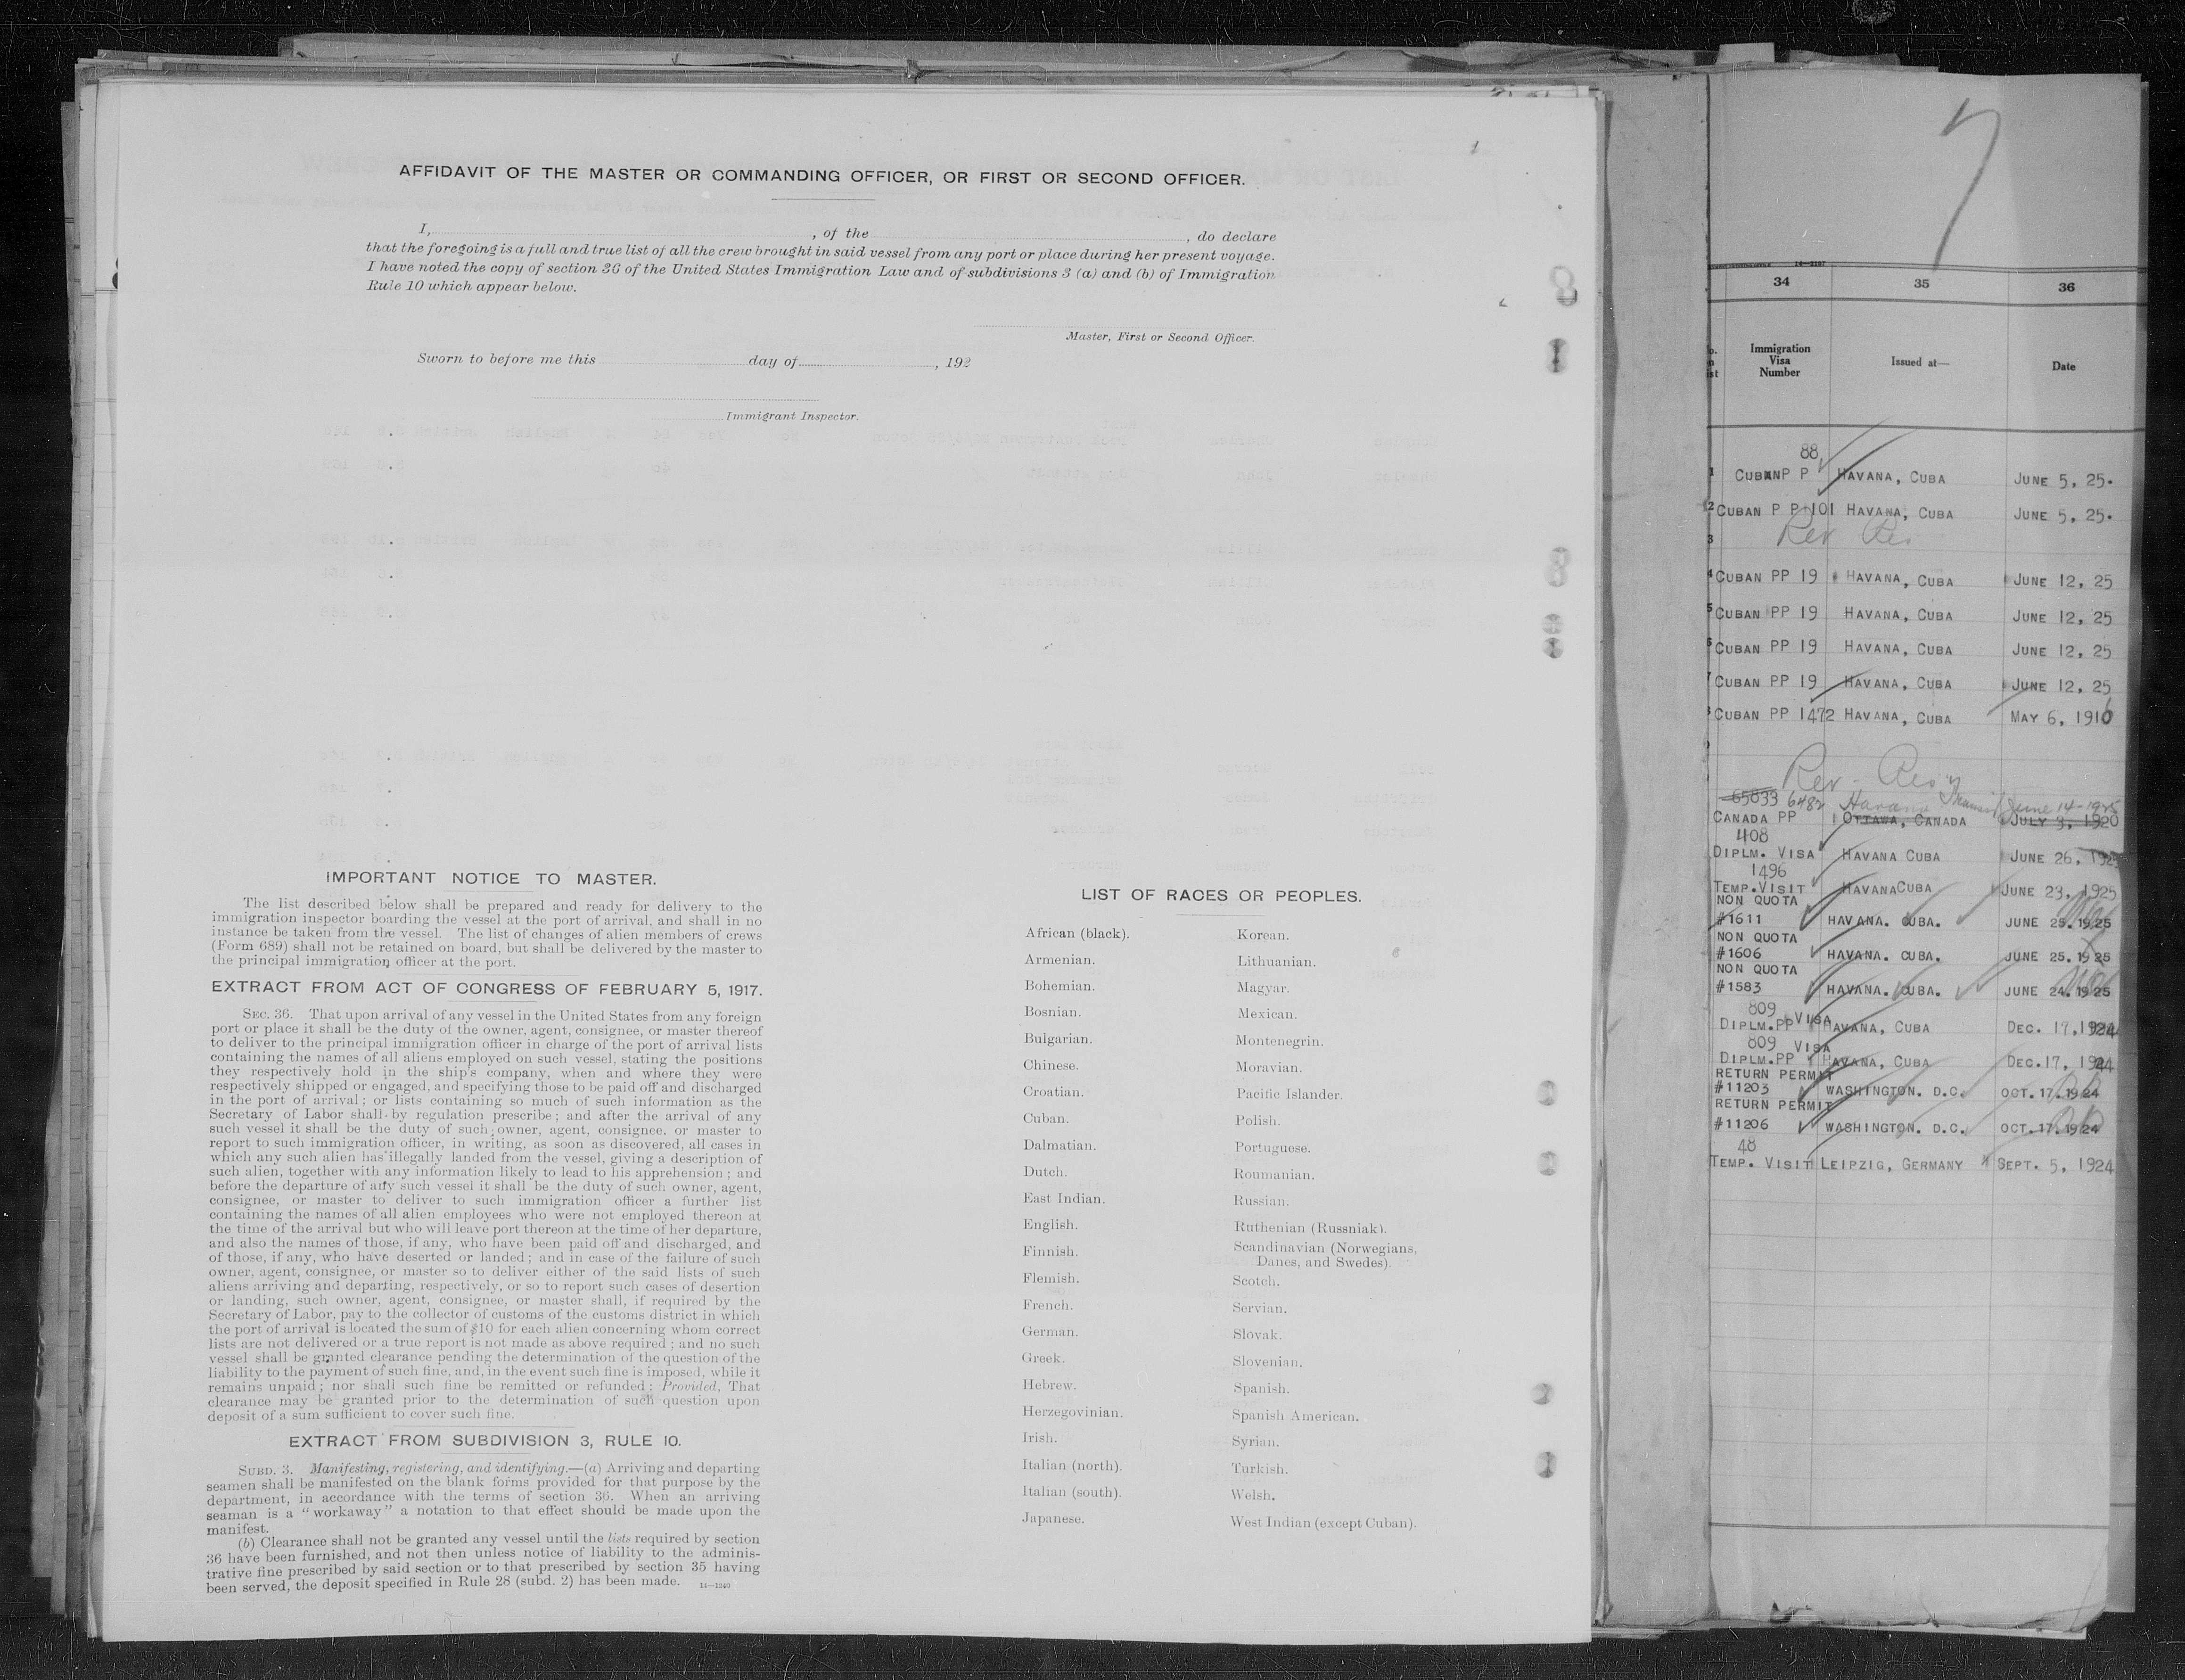 AFFIDAVIT OF THE MASTER OR COMMANDING OFFICER, OR FIRST OR SECOND OFFICER.
I, , of the , do declare
that the foregoing is a full and true list of all the crew brought in said vessel from any port or place during her present voyage.
I have noted the copy of section 36 of the United States Immigration Law and of subdivisions 3 (a) and (b) of Immigration
Rule 10 which appear below.
Master, First or Second Officer.
Sworn to before me this day of , 192
Immigrant Inspector.
IMPORTANT NOTICE TO MASTER.
The list described below shall be prepared and ready for delivery to the
immigration inspector boarding the vessel at the port of arrival, and shall in no
instance be taken from the vessel. The list of changes of alien members of crews
(Form 689) shall not be retained on board, but shall be delivered by the master to
the principal immigration officer at the port.
EXTRACT FROM ACT OF CONGRESS OF FEBRUARY 5, 1917.
SEC. 36. That upon arrival of any vessel in the United States from any foreign
port or place it shall be the duty of the owner, agent, consignee, or master thereof
to deliver to the principal immigration officer in charge of the port of arrival lists
containing the names of all aliens employed on such vessel, stating the positions
they respectively hold in the ship's company, when and where they were
respectively shipped or engaged, and specifying those to be paid off and discharged
in the port of arrival; or lists containing so much of such information as the
Secretary of Labor shall by regulation prescribe; and after the arrival of any
such vessel it shall be the duty of such owner, agent, consignee, or master to
report to such immigration officer, in writing, as soon as discovered, all cases in
which any such alien has illegally landed from the vessel, giving a description of
such alien, together with any information likely to lead to his apprehension; and
before the departure of any such vessel it shall be the duty of such owner, agent,
consignee, or master to deliver to such immigration officer a further list
containing the names of all alien employees who were not employed thereon at
the time of the arrival but who will leave port thereon at the time of her departure,
and also the names of those, if any, who have been paid off and discharged, and
of those, if any, who have deserted or landed; and in case of the failure of such
owner, agent, consignee, or master so to deliver either of the said lists of such
aliens arriving and departing, respectively, or so to report such cases of desertion
or landing, such owner, agent, consignee, or master shall, if required by the
Secretary of Labor, pay to the collector of customs of the customs district in which
the port of arrival is located the sum of $10 for each alien concerning whom correct
lists are not delivered or a true report is not made as above required; and no such
vessel shall be granted clearance pending the determination of the question of the
liability to the payment of such fine, and, in the event such fine is imposed, while it
remains unpaid; nor shall such fine be remitted or refunded: Provided, That
clearance may be granted prior to the determination of such question upon
deposit of a sum sufficient to cover such fine.
EXTRACT FROM SUBDIVISION 3, RULE 10.
SUBD. 3. Manifesting, registering, and identifying.—(a) Arriving and departing
seamen shall be manifested on the blank forms provided for that purpose by the
department, in accordance with the terms of section 36. When an arriving
seaman is a "workaway" a notation to that effect should be made upon the
manifest.
(b) Clearance shall not be granted any vessel until the lists required by section
36 have been furnished, and not then unless notice of liability to the adminis-
trative fine prescribed by said section or to that prescribed by section 35 having
been served, the deposit specified in Rule 28 (subd. 2) has been made. 14—1240
LIST OF RACES OR PEOPLES.
African (black).
Armenian.
Bohemian.
Bosnian.
Bulgarian.
Chinese.
Croatian.
Cuban.
Dalmatian.
Dutch.
East Indian.
English.
Finnish.
Flemish.
French.
German.
Greek.
Hebrew.
Herzegovinian.
Irish.
Italian (north).
Italian (south).
Japanese.
Korean.
Lithuanian.
Magyar.
Mexican.
Montenegrin.
Moravian.
Pacific Islander.
Polish.
Portuguese.
Roumanian.
Russian.
Ruthenian (Russniak).
Scandinavian (Norwegians,
Danes, and Swedes).
Scotch.
Servian.
Slovak.
Slovenian.
Spanish.
Spanish American.
Syrian.
Turkish.
Welsh.
West Indian (except Cuban).
7
34 35 36
Immigration
Visa
Number
Issued at—
Date
88
1 CUBAN P P HAVANA, CUBA JUNE 5, 25.
2 CUBAN P P 101 HAVANA, CUBA JUNE 5, 25.
3 Rev Res
4 CUBAN PP 19 HAVANA, CUBA JUNE 12, 25
5 CUBAN PP 19 HAVANA, CUBA JUNE 12, 25
6 CUBAN PP 19 HAVANA, CUBA JUNE 12, 25
7 CUBAN PP 19 HAVANA, CUBA JUNE 12, 25
CUBAN PP 1472 HAVANA, CUBA MAY 6, 1916
Rev - Res
65833 6482 Havana June 14-1925
CANADA PP OTTAWA, CANADA JULY 3, 1920
408
DIPLM. VISA HAVANA CUBA JUNE 26, 1925
1496
TEMP. VISIT HAVANA CUBA JUNE 23, 1925
NON QUOTA
#1611 HAVANA. CUBA. JUNE 25. 1925
NON QUOTA
#1606 HAVANA. CUBA. JUNE 25. 1925
NON QUOTA
#1583 HAVANA. CUBA. JUNE 24. 1925
809 VISA
DIPLM. PP HAVANA, CUBA DEC. 17, 1924
809 VISA
DIPLM. PP HAVANA, CUBA DEC. 17, 1924
RETURN PERMIT
#11203 WASHINGTON. D.C. OCT. 17. 1924
RETURN PERMIT
#11206 WASHINGTON. D.C. OCT. 17. 1924
48
TEMP. VISIT LEIPZIG, GERMANY SEPT. 5, 1924